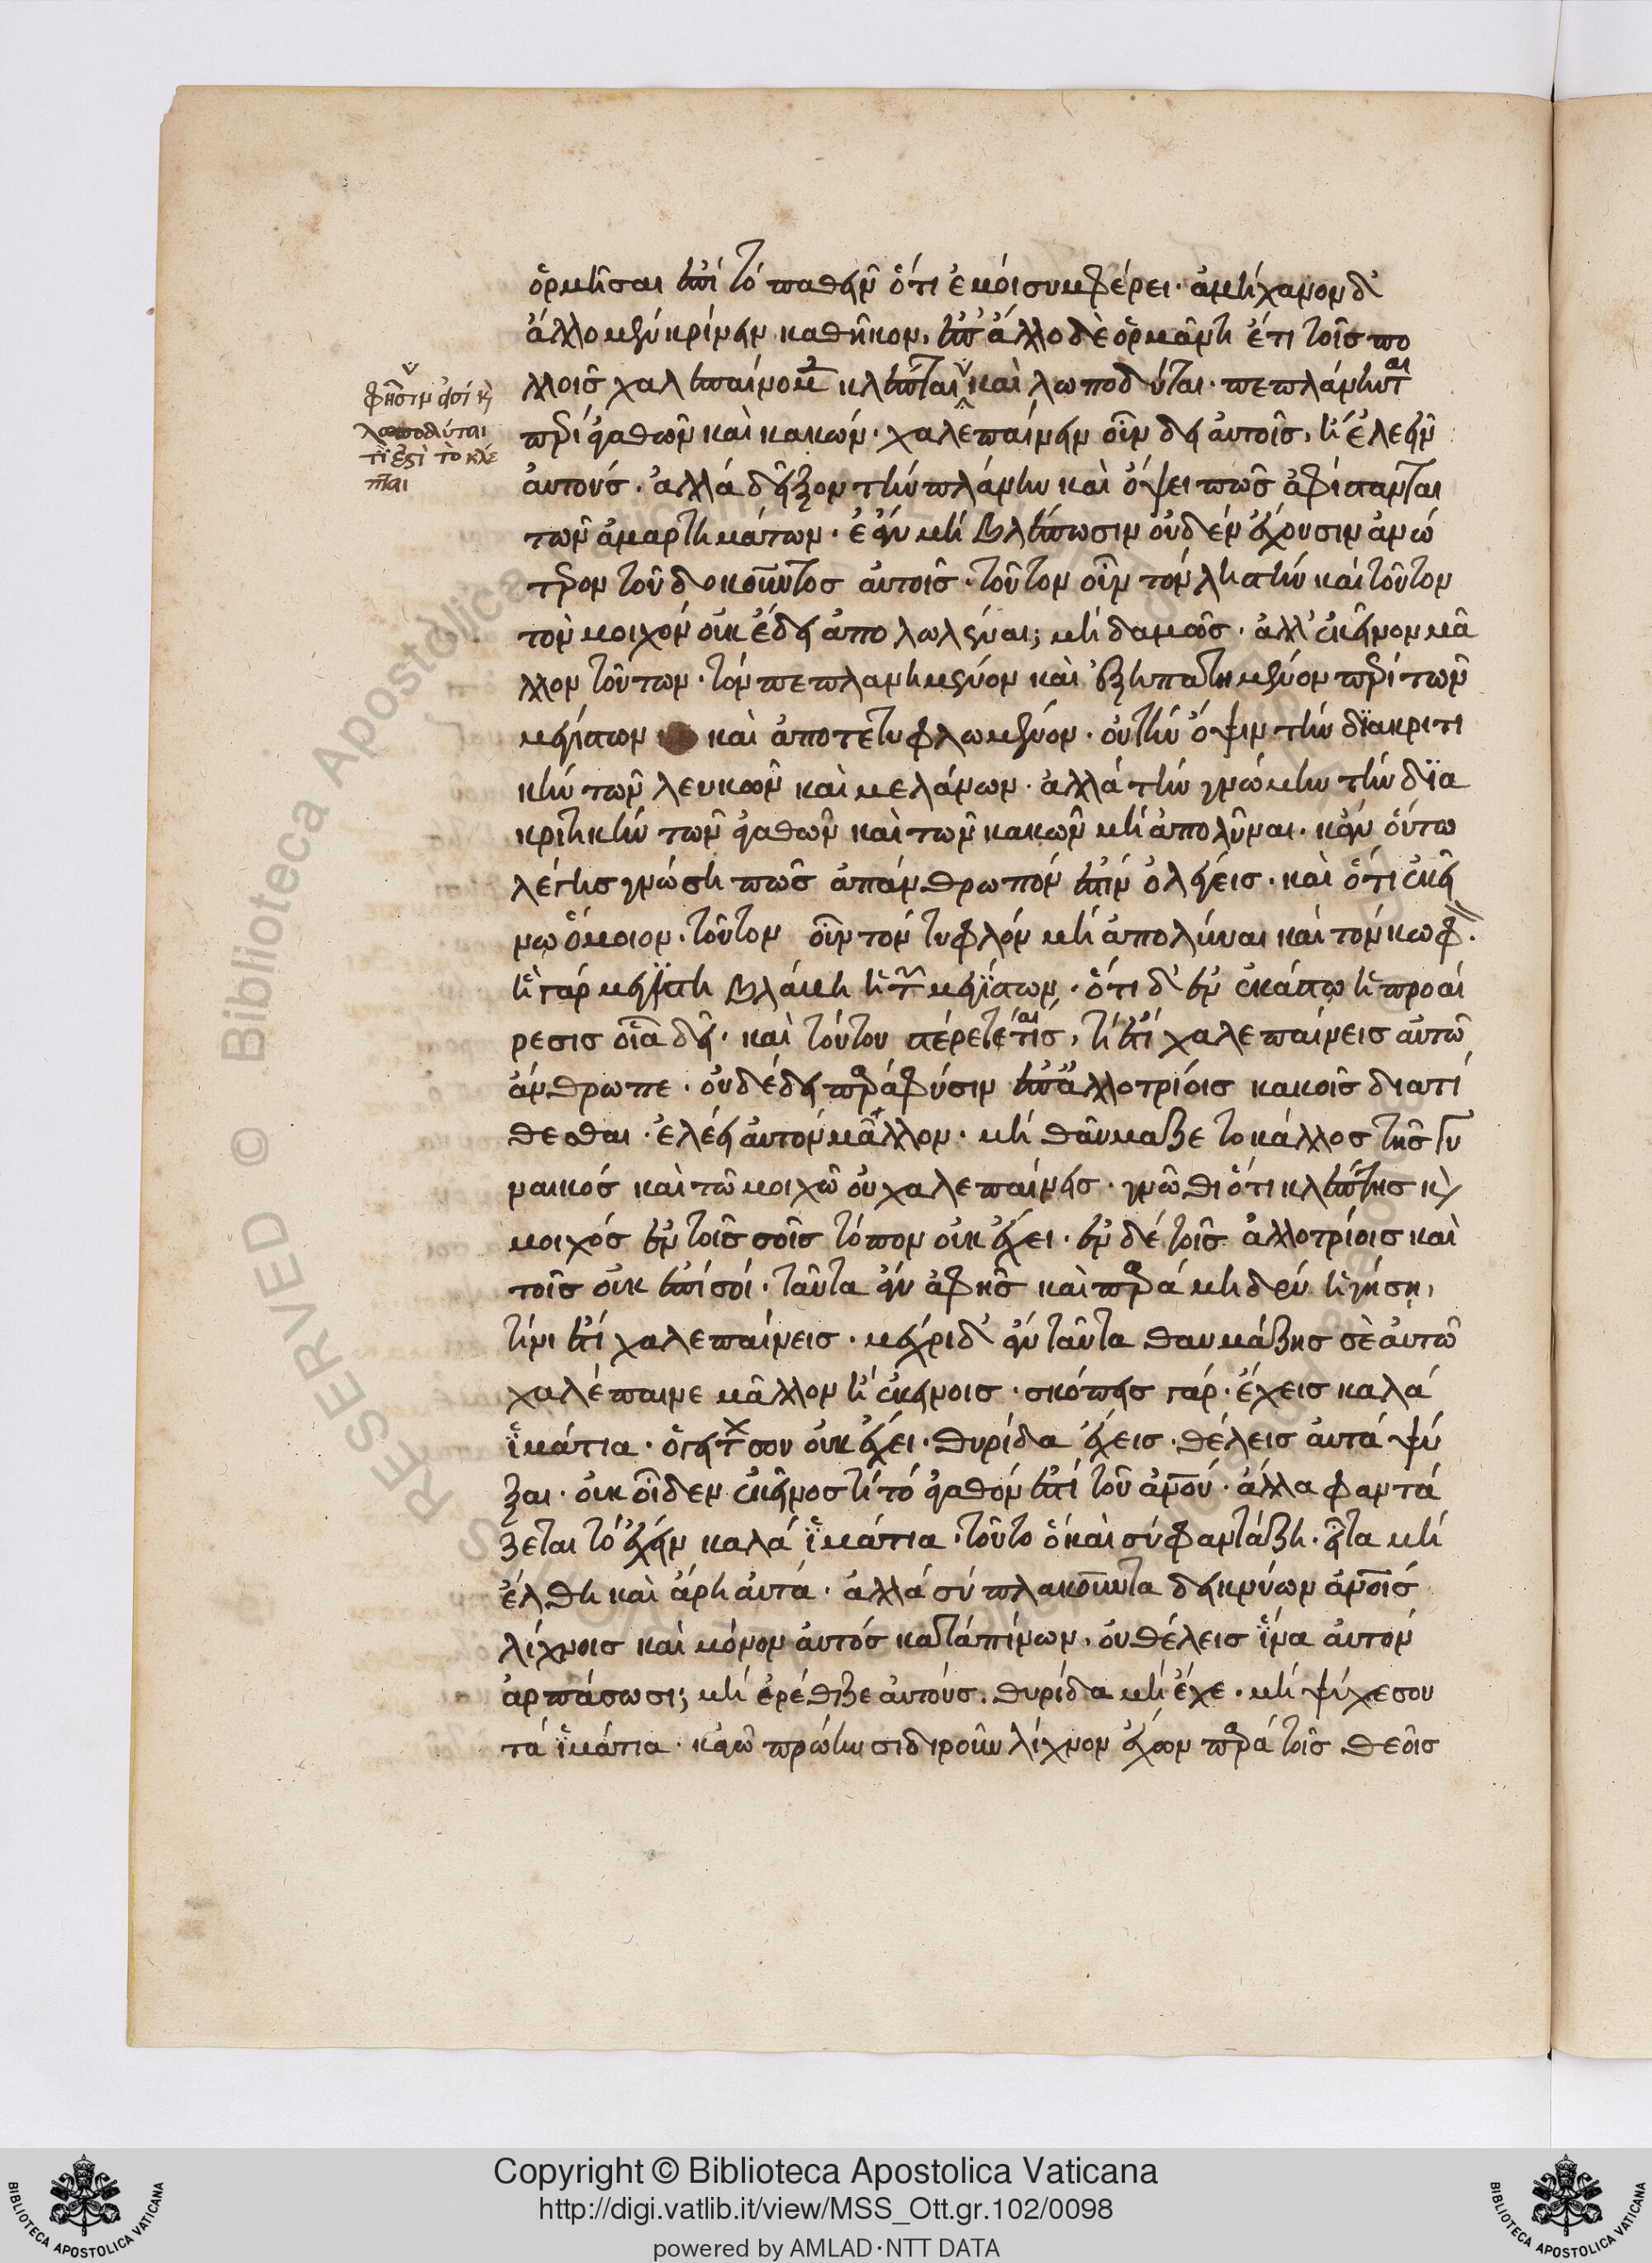 ὁρμῆσαι ἐπί τό παθεῖν ὅτι ἐμοί συμφέρει· ἀμήχανον δ'
ἄλλο μὲν κρίνειν καθῆκον, ἐπ' ἄλλο δὲ ὁρμᾶν τί ἔτι τοῖς πο
λλοῖς χαλεπαίνομεν κλέπται καὶ λωποδύται· πεπλάνηνται
φησίν εἰσί κ(αὶ)
λωποδύται
τί ἐστὶ τὸ κλέ
πται
περί ἀγαθῶν καὶ κακῶν· χαλεπαίνειν οὖν δεῖ αὐτοῖς, ἤ ἐλεεῖν
αὐτούς· ἀλλά δεῖξον τήν πλάνην καὶ ὄψει πῶς ἀφίστανται
τῶν ἁμαρτημάτων· ἐάν μή βλέπωσιν οὐδέν ἔχουσιν ἀνώ
τερον τοῦ δοκοῦντος αὐτοῖς· τοῦτον οὖν τόν ληστήν καί τοῦτον
τὸν μοιχόν οὐκ ἔδει ἀπολωλέναι; μή δαμῶς· ἀλλ' ἐκεῖνον μᾶ
λλον τοῦτων· τόν πεπλανημένον καὶ ἐξηπατημένον περί τῶν
μεγίστων καὶ ἀποτετυφλωμένον· οὐ τήν ὄψιν τήν διακριτι
κήν τῶν λευκῶν καὶ μελάνων· ἀλλά τήν γνώμην τήν δϊα
κριτικήν τῶν ἀγαθῶν καὶ τῶν κακῶν μή ἀπολῦναι· κἄν οὕτω
λέγης γνώση πῶς ἀπάνθρωπόν ἐστίν ὁ λέγεις· καὶ ὅτι ἐκεί
νῳ ὅμοιον· τοῦτον οὖν τόν τυφλόν μή ἀπολύναι καί τόν κωφ.
ἤ γάρ μεγίστη βλάβη ἡ τῶν μεγίστων· ὅτι δ' ἐν ἑκάστῳ ἡ προαί
ρεσις οἵα δεῖ· καὶ τούτου στέρεταί τις, τί ἔτι χαλεπαίνεις αὐτῶ
ἄνθρωπε· οὐ δέ δει παρά φύσιν ἐπ' ἀλλοτρίοις κακοῖς διατί
θεσθαι· ἐλέει αὐτόν μᾶλλον· μή θαύμαζε το κάλλος τῆς γυ
ναικός καὶ τῶ μοιχῶ οὐ χαλεπαίνεις· γνῶθι ὅτι κλέπτης κ(αὶ)
μοιχός ἐν τοῖς σοῖς τόπον οὐκ ἔχει· ἐν δέ τοῖς ἀλλοτρίοις καὶ
τοῖς οὐκ ἐπί σοί· ταῦτα ἄν ἀφῆς καὶ παρά μηδέν ἡγήση,
τίνι ἔτι χαλεπαίνεις· μέχρι δ' ἄν ταῦτα θαυμάζης σὲ αὐτῶ
χαλέπαινε μᾶλλον ἤ ἐκείνοις· σκόπει γάρ· ἔχεις καλά
ἱμάτια· ὁ γείτων σου οὐκ ἔχει· θυρίδα ἔχεις· θέλεις αὐτά ψύ
ξαι· οὐκ οἶδεν ἐκεῖνος τί τό ἀγαθόν ἐστί τοῦ ἀνου· ἀλλα φαντά
ζεται τό ἔχειν καλά ἱμάτια· τοῦτο ὁ καὶ σύ φαντάζη· εἶτα μή
ἔλθη καὶ ἄρη αὐτά· ἀλλά σύ πλακοῦντα δεικνύων ἀνοις
λίχνοις καὶ μόνον αὐτός καταπίνων, οὐ θέλεις ἵνα αὐτόν
ἁρπάσωσι; μή ἐρέθιζε αὐτούς. θυρίδα μή ἔχε· μή ψύχε σου
τά ἱμάτια· κἀγῶ πρώην σιδηροῦν λίχνον ἔχων παρά τοῖς θεοῖς
Copyright © Biblioteca Apostolica Vaticana
http://digi.vatlib.it/view/MSS_Ott.gr.102/0098
powered by AMLAD·NTT DATA